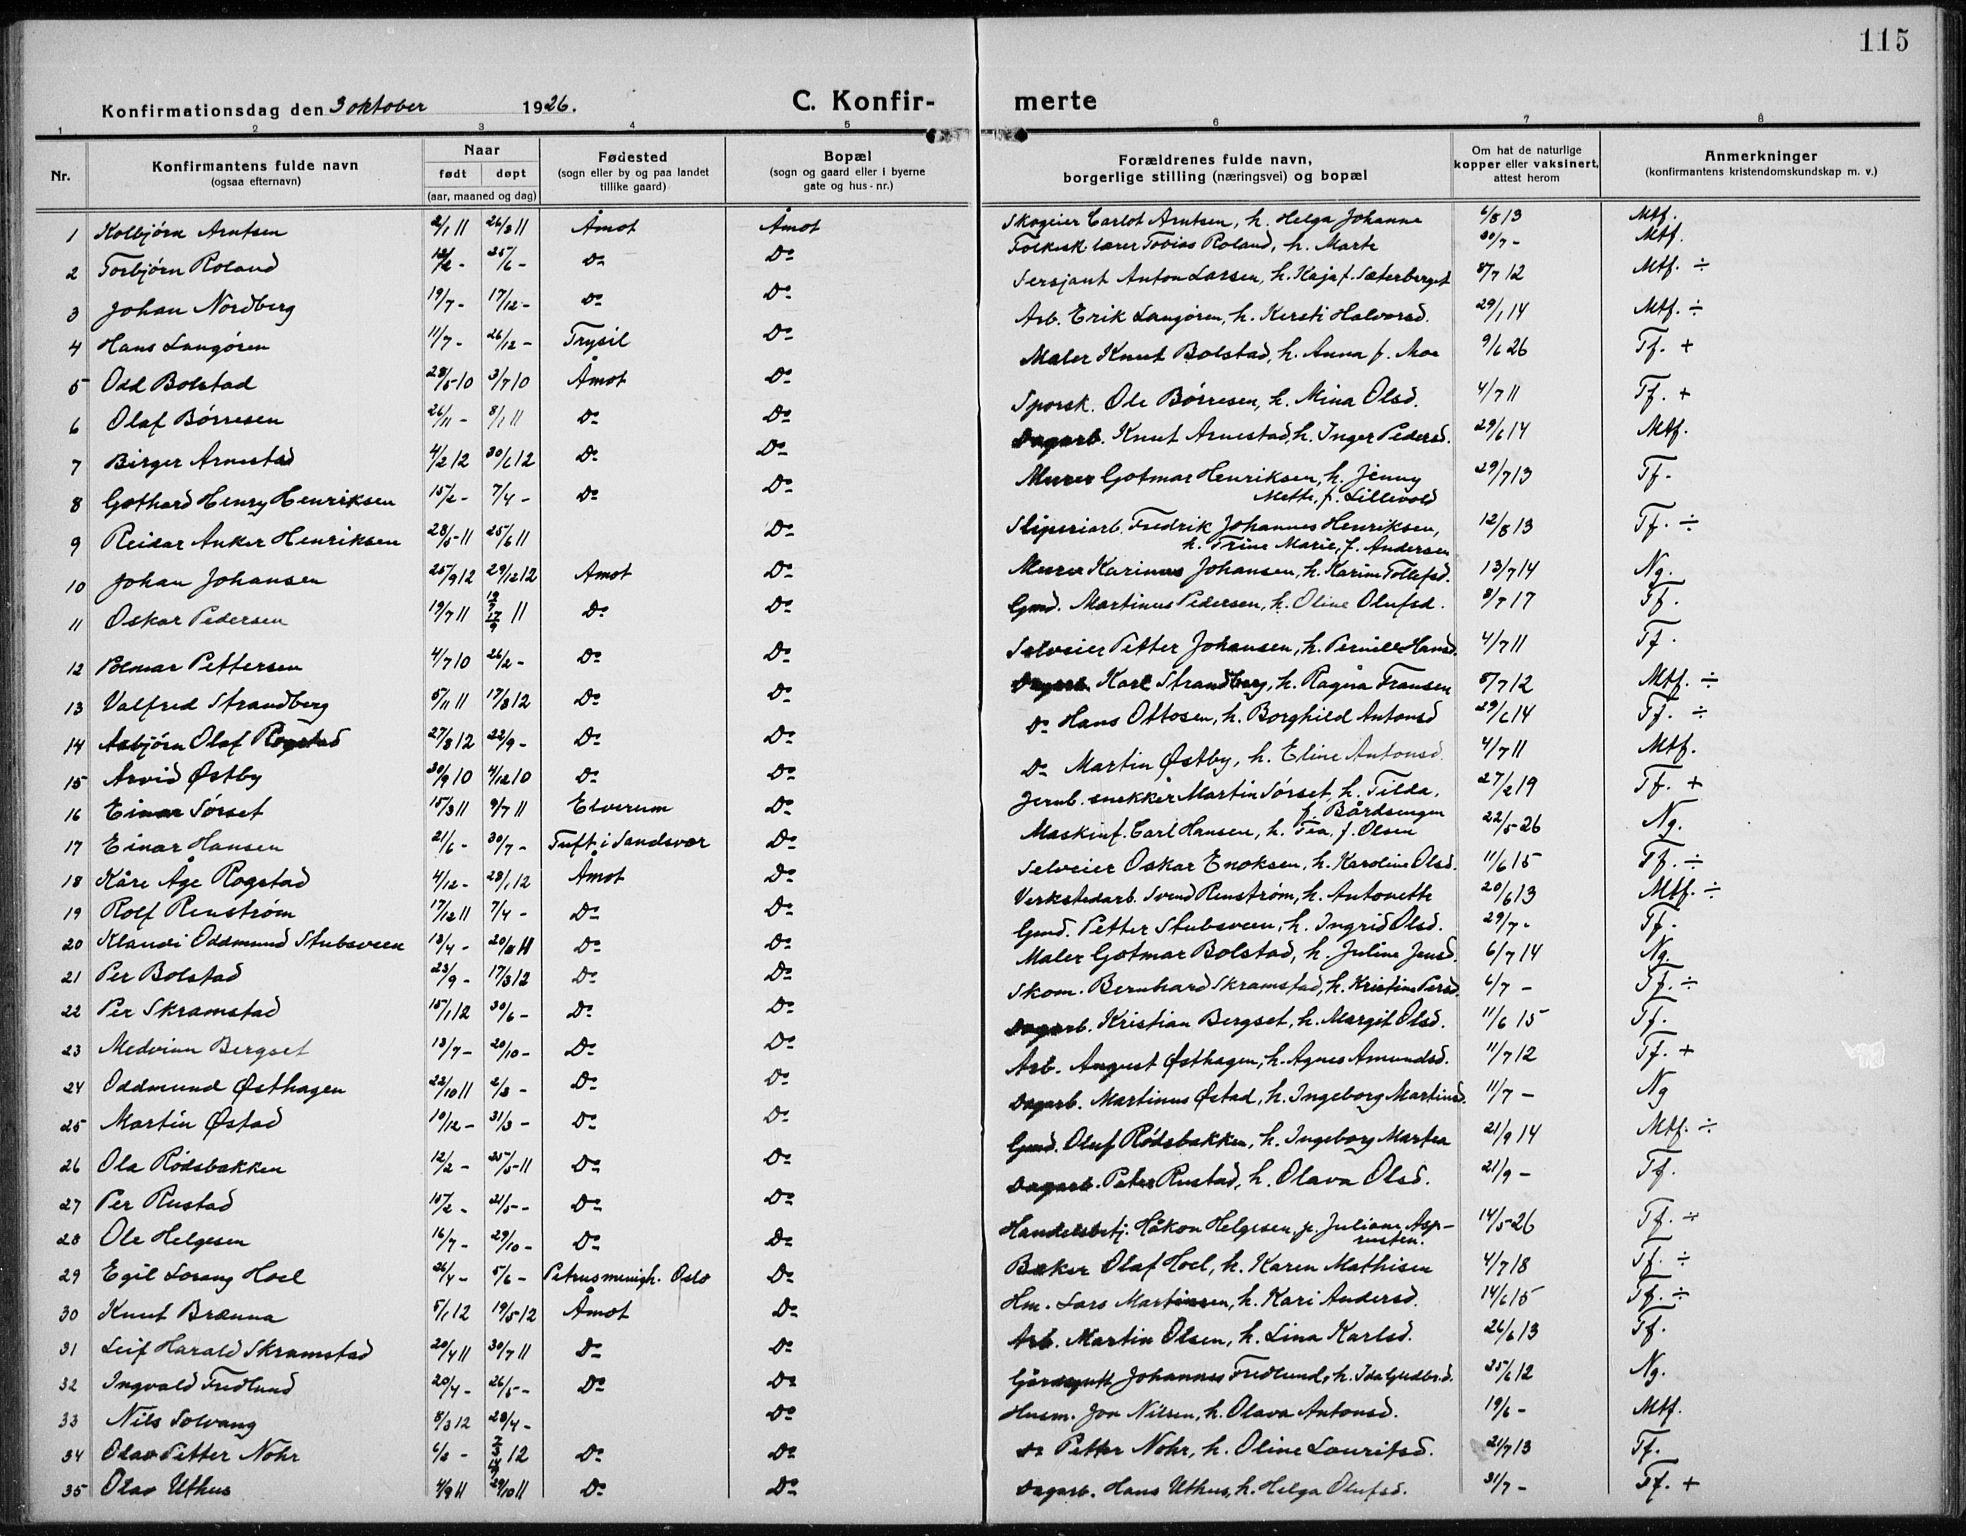 115
Konfirmationsdag den 3 oktober 1926.
C. Konfirmerte
1 2 3 4 5 6 7 8
Nr.
Konfirmantens fulde navn
(ogsaa efternavn)
Naar
født døpt
(aar, maaned og dag)
Fødested
(sogn eller by og paa landet
tillike gaard)
Bopæl
(sogn og gaard eller i byerne
gate og hus-nr.)
Forældrenes fulde navn,
borgerlige stilling (næringsvei) og bopæl
Om hat de naturlige
kopper eller vaksinert,
attest herom
Anmerkninger
(konfirmantens kristendomskundskap m. v.)
1 Kolbjørn Arntsen 2/1 11 26/3 11 Åmot Åmot Skogeier Carlot Arntsen, h. Helga Johanne 6/8 13 Mtf.
2 Torbjørn Roland 25/6 - Do Do Folkesk.lærer Tobias Roland, h. Marte 30/7 - Mtf.
3 Johan Nordberg 19/7 - 17/12 - Do Do Sersjant Anton Larsen, h. Kaja f. Sæterberget 8/7 12 Mtf. ÷
4 Hans Langøren 11/7 - 26/12 - Trysil Do Arb. Erik Langøren, h. Kersti Halvorsd. 29/1 14 Mtf. ÷
5 Odd Bolstad 28/5 10 3/7 10 Åmot Do Maler Knut Bolstad, h. Anna f. Moe 9/6 26 Tf. +
6 Olaf Børresen 26/11 - 8/1 11 Do Do Sporsk. Ole Børresen, h. Mina Olsd. 4/7 11 Tf. +
7 Birger Arnestad 4/2 12 30/6 12 Do Do Dagarb. Knut Arnestad, h. Inger Pedersd. 29/6 14 Mtf.
8 Gothard Henry Henriksen 15/2 - 7/4 - Do Do Murer Gotmar Henriksen, h. Jenny
Mette, f. Lillevold 29/7 13 Tf.
9 Reidar Anker Henriksen 28/5 11 25/6 11 Do Sliperiarb. Fredrik Johannes Henriksen,
h. Trine Marie, f. Andersen 12/8 13 Tf. ÷
10 Johan Johansen 25/9 12 29/12 12 Åmot Do Murer Karinus Johansen, h. Karin Tollefsd. 13/7 14 Ng.
11 Oskar Pedersen 19/7 11 19/7 17/9 11 Do Do Gmd. Martinus Pedersen, h. Oline Olufsd. 8/7 17 Tf.
12 Polmar Pettersen 4/7 10 26/2 - Do Do Selveier Petter Johansen, h. Pernille Hansd. 4/7 11 Tf.
13 Valfred Strandberg 5/11 11 17/3 12 Do Do Dagarb. Karl Strandberg, h. Ragna Fransen 8/7 12 Mtf. ÷
14 Asbjørn Olaf Rogstad 27/3 12 22/9 - Do Do Do Hans Ottosen, h. Borghild Antonsd 29/6 14 Tf. ÷
15 Arvid Østby 30/9 10 4/12 10 Do Do Do Martin Østby, h. Eline Antonsd. 4/7 11 Mtf.
16 Einar Sørset 15/3 11 9/7 11 Elverum Do Jernb. snekker Martin Sørset, h. Tilda,
f. Bårdsengen 27/2 19 Tf. +
17 Einar Hansen 21/6 - 30/7 - Tuft i Sandsvær Do Maskinf. Carl Hansen, h. Tea, f. Olsen 22/5 26 Ng.
18 Kåre Åge Rogstad 4/12 - 28/1 12 Åmot Do Selveier Oskar Enoksen, h. Karoline Olsd. 11/6 15 Tf. ÷
19 Rolf Renstrøm 17/12 11 7/4 - Do Do Verkstedarb. Svend Renstrøm, h. Antonette 20/6 13 Mtf. ÷
20 Klaudi Oddmund Stubsveen 13/4 - 20/8 11 Do Do Gmd. Petter Stubsveen, h. Ingrid Olsd. 29/7 - Tf.
21 Per Bolstad 23/9 - 17/3 12 Do Do Maler Gotmar Bolstad, h. Juline Jensd. 6/7 14 Ng.
22 Per Skramstad 15/1 12 30/6 - Do Do Skom. Bernhard Skramstad, h. Kristine Persd. 6/7 - Tf. ÷
23 Medvinn Bergset 13/7 - 20/10 - Do Do Dagarb. Kristian Bergset, h. Margit Olsd. 11/6 15 Tf.
24 Oddmund Østhagen 22/10 11 2/3 - Do Do Arb. August Østhagen, h. Agnes Amundsd. 11/7 12 Tf. +
25 Martin Østad 10/12 - 31/3 - Do Do Dagarb. Martinus Østad, h. Ingeborg Martinsd. 11/7 - Ng
26 Ola Rødsbakken 12/2 - 25/5 11 Do Do Gmd. Oluf Rødsbakken, h. Ingeborg Martea 21/9 14 Mtf. ÷
27 Per Rustad 15/2 - 21/5 - Do Do Dagarb. Peter Rustad, h. Olava Olsd. 21/9 - Tf.
28 Ole Helgesen 16/7 - 29/10 - Do Do Handelsbetj. Håkon Helgesen, p. Juliane Asp-
rusten. 14/5 26 Tf. ÷
29 Egil Sorang Hoel 26/4 - 5/6 - Petrusmenigh. Oslo Do Baker Olaf Hoel, h. Karen Mathisen 4/7 18 Tf. ÷
30 Knut Brænna 5/1 12 19/5 12 Åmot Do Hm. Lars Martinsen, h. Kari Andersd. 14/6 15 Tf. ÷
31 Leif Harald Skramstad 20/4 11 30/7 11 Do Do Arb. Martin Olsen, h. Lina Karlsd. 26/6 13 Tf.
32 Ingvald Fredlund 20/4 - 26/5 - Do Do Gårdsgutt Johannes Fredlund, h. Ida Gudbr.d. 25/6 12 Ng.
33 Nils Solvang 8/3 12 28/4 - Do Husm. Jon Nilsen, h. Olava Antonsd. 19/6 - Mtf.
34 Olav Petter Nohr 6/2 - 12 Do Do Do Petter Nohr, h. Oline Lauritsd. 21/7 13 Tf.
35 Olav Uthus 4/9 11 29/10 11 Do Do Dagarb. Hans Uthus, h. Helga Olufsd. 31/7 - Tf. +